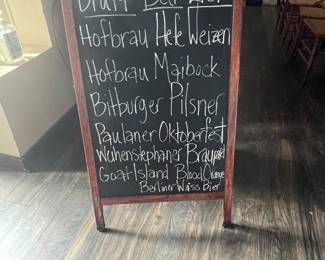 Draft Beer List
Hofbrau Hefe Weizen
Hofbrau Maibock
Bitburger Pilsner
Paulaner Oktoberfest
Weihenstephaner Braupakt
Goat Island Blood Orange
Berliner Weiss Bier